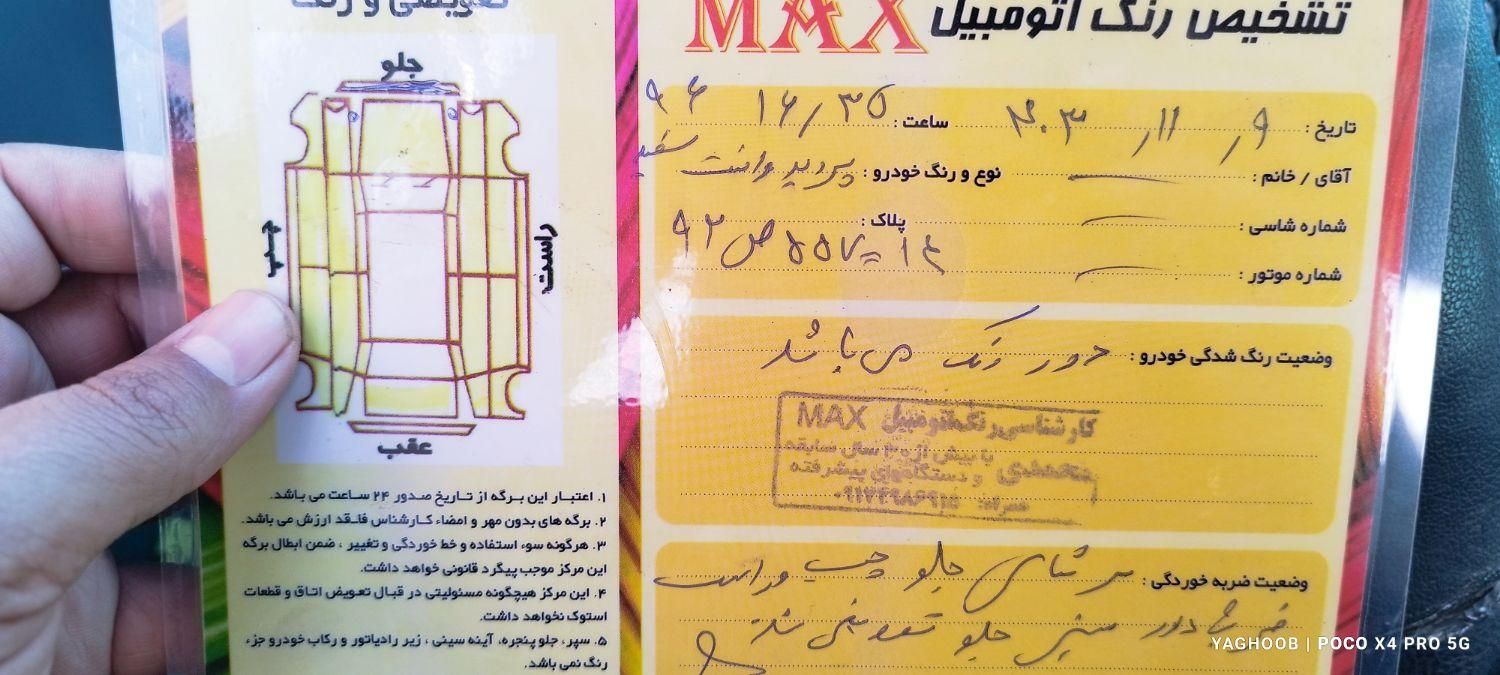 تشخیص رنگ اتومبیل MAX
تاریخ : ۹ / ۱۱ / ۴۰۳ ساعت : ۱۶/۳۵ ۹۶
آقای / خانم : نوع و رنگ خودرو : پراید وانت سفید
شماره شاسی : پلاک :
شماره موتور :
وضعیت رنگ شدگی خودرو : دور رنگ می باشد
کارشناسی رنگ اتومبیل MAX
با بیش از ۳۰ سال سابقه
و دستگاههای پیشرفته
همراه:
وضعیت ضربه خوردگی : سر شاسی جلو چپ و راست
ضربه دارد سینی جلو تعویض شد
تعویضی و رنگ
جلو
چپ
راست
عقب
۱. اعتبار این برگه از تاریخ صدور ۲۴ ساعت می باشد.
۲. برگه های بدون مهر و امضاء کارشناس فاقد ارزش می باشد.
۳. هرگونه سوء استفاده و خط خوردگی و تغییر ، ضمن ابطال برگه
این مرکز موجب پیگرد قانونی خواهد داشت.
۴. این مرکز هیچگونه مسئولیتی در قبال تعویض اتاق و قطعات
استوک نخواهد داشت.
۵. سپر، جلو پنجره، آینه سینی ، زیر رادیاتور و رکاب خودرو جزء
رنگ نمی باشد.
YAGHOOB | POCO X4 PRO 5G